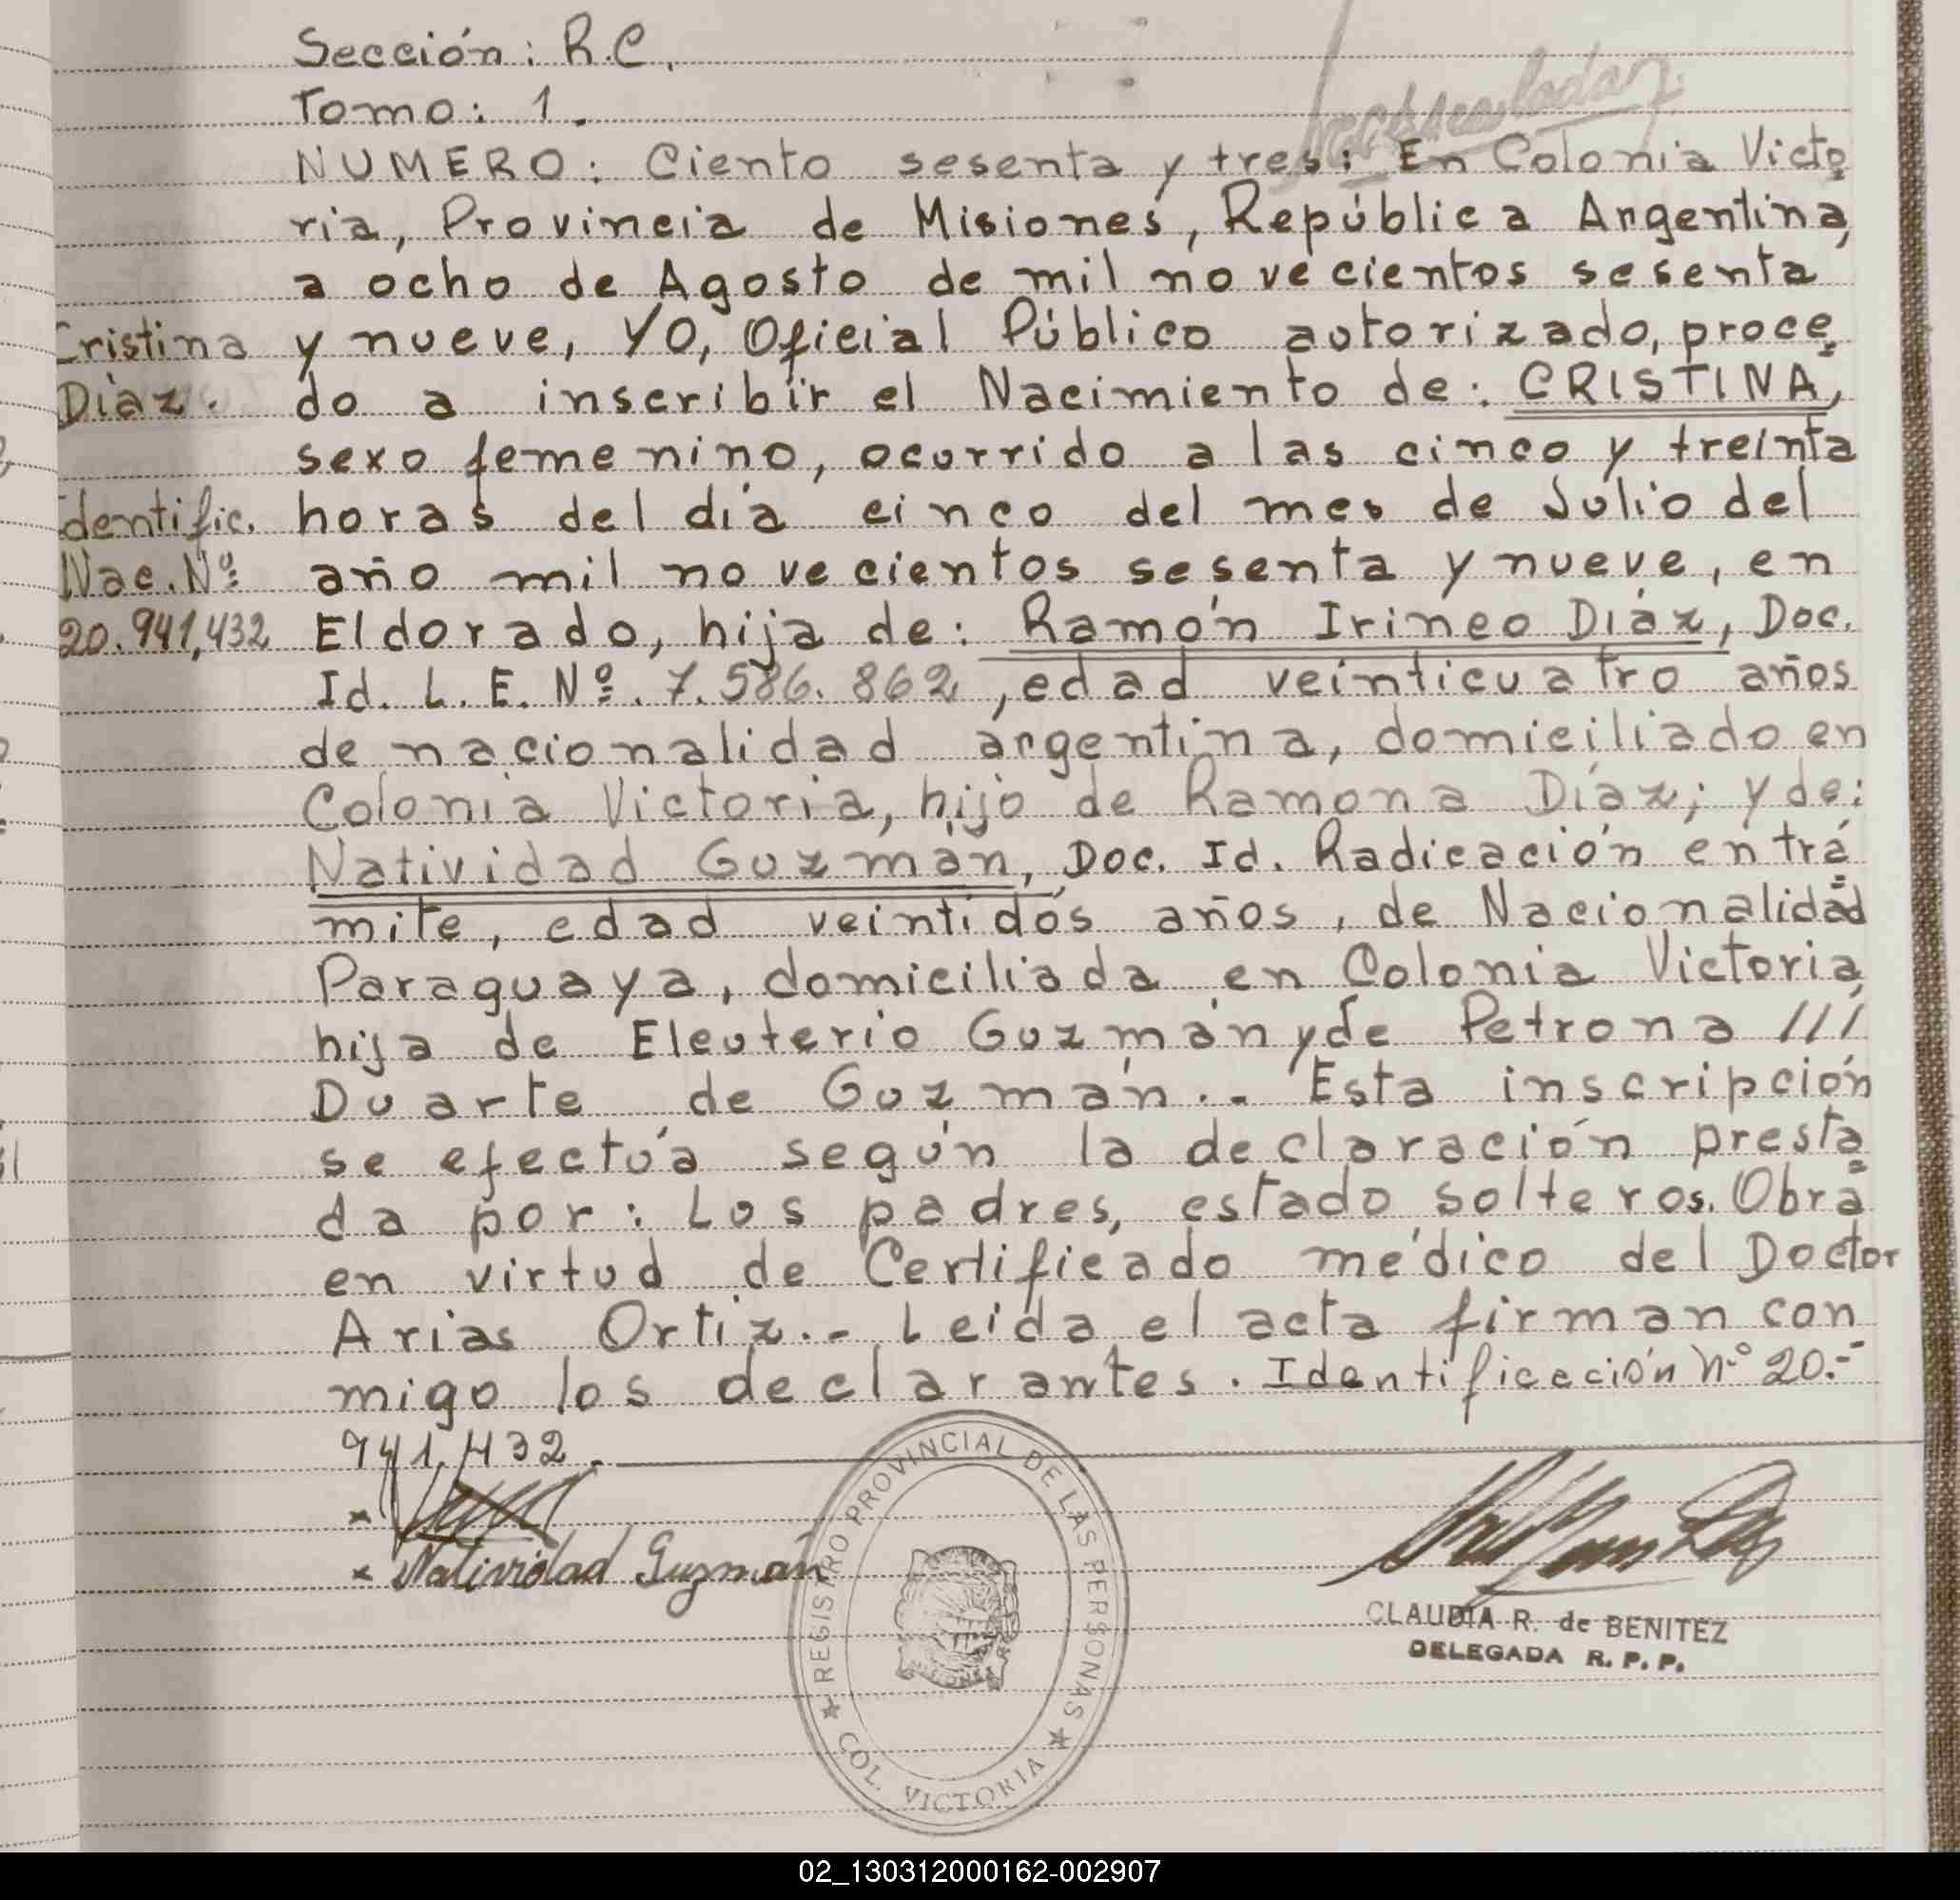 Sección: R.C.
Tomo: 1.
NUMERO: Ciento sesenta y tres: En Colonia Victo
ria, Provincia de Misiones, República Argentina,
a ocho de Agosto de mil novecientos sesenta
Cristina
Díaz.
y nueve, YO, Oficial Público autorizado, proce
do a inscribir el Nacimiento de: CRISTINA,
sexo femenino, ocurrido a las cinco y treinta
dentific.
Nac. Nº
20.941,432
horas del día cinco del mes de Julio del
año mil novecientos sesenta y nueve, en
Eldorado, hija de: Ramón Irineo Díaz, Doc.
Id. L. E. Nº. 7.586.862, edad veinticuatro años
de nacionalidad argentina, domiciliado en
Colonia Victoria, hijo de Ramona Díaz; y de:
Natividad Guzmán, Doc. Id. Radicación en trá
mite, edad veintidós años, de Nacionalidad
Paraguaya, domiciliada en Colonia Victoria,
hija de Eleuterio Guzmán y de Petrona ///
Duarte de Guzmán.- Esta inscripción
se efectúa según la declaración presta
da por: Los padres, estado solteros. Obra
en virtud de Certificado médico del Doctor
Arias Ortiz.- Leída el acta firman con
migo los declarantes. Identificación nº 20.-
941.432.
x
x Natividad Guzmán
REGISTRO PROVINCIAL DE LAS PERSONAS
COL. VICTORIA
CLAUDIA R. de BENITEZ
DELEGADA R. P. P.
02_130312000162-002907